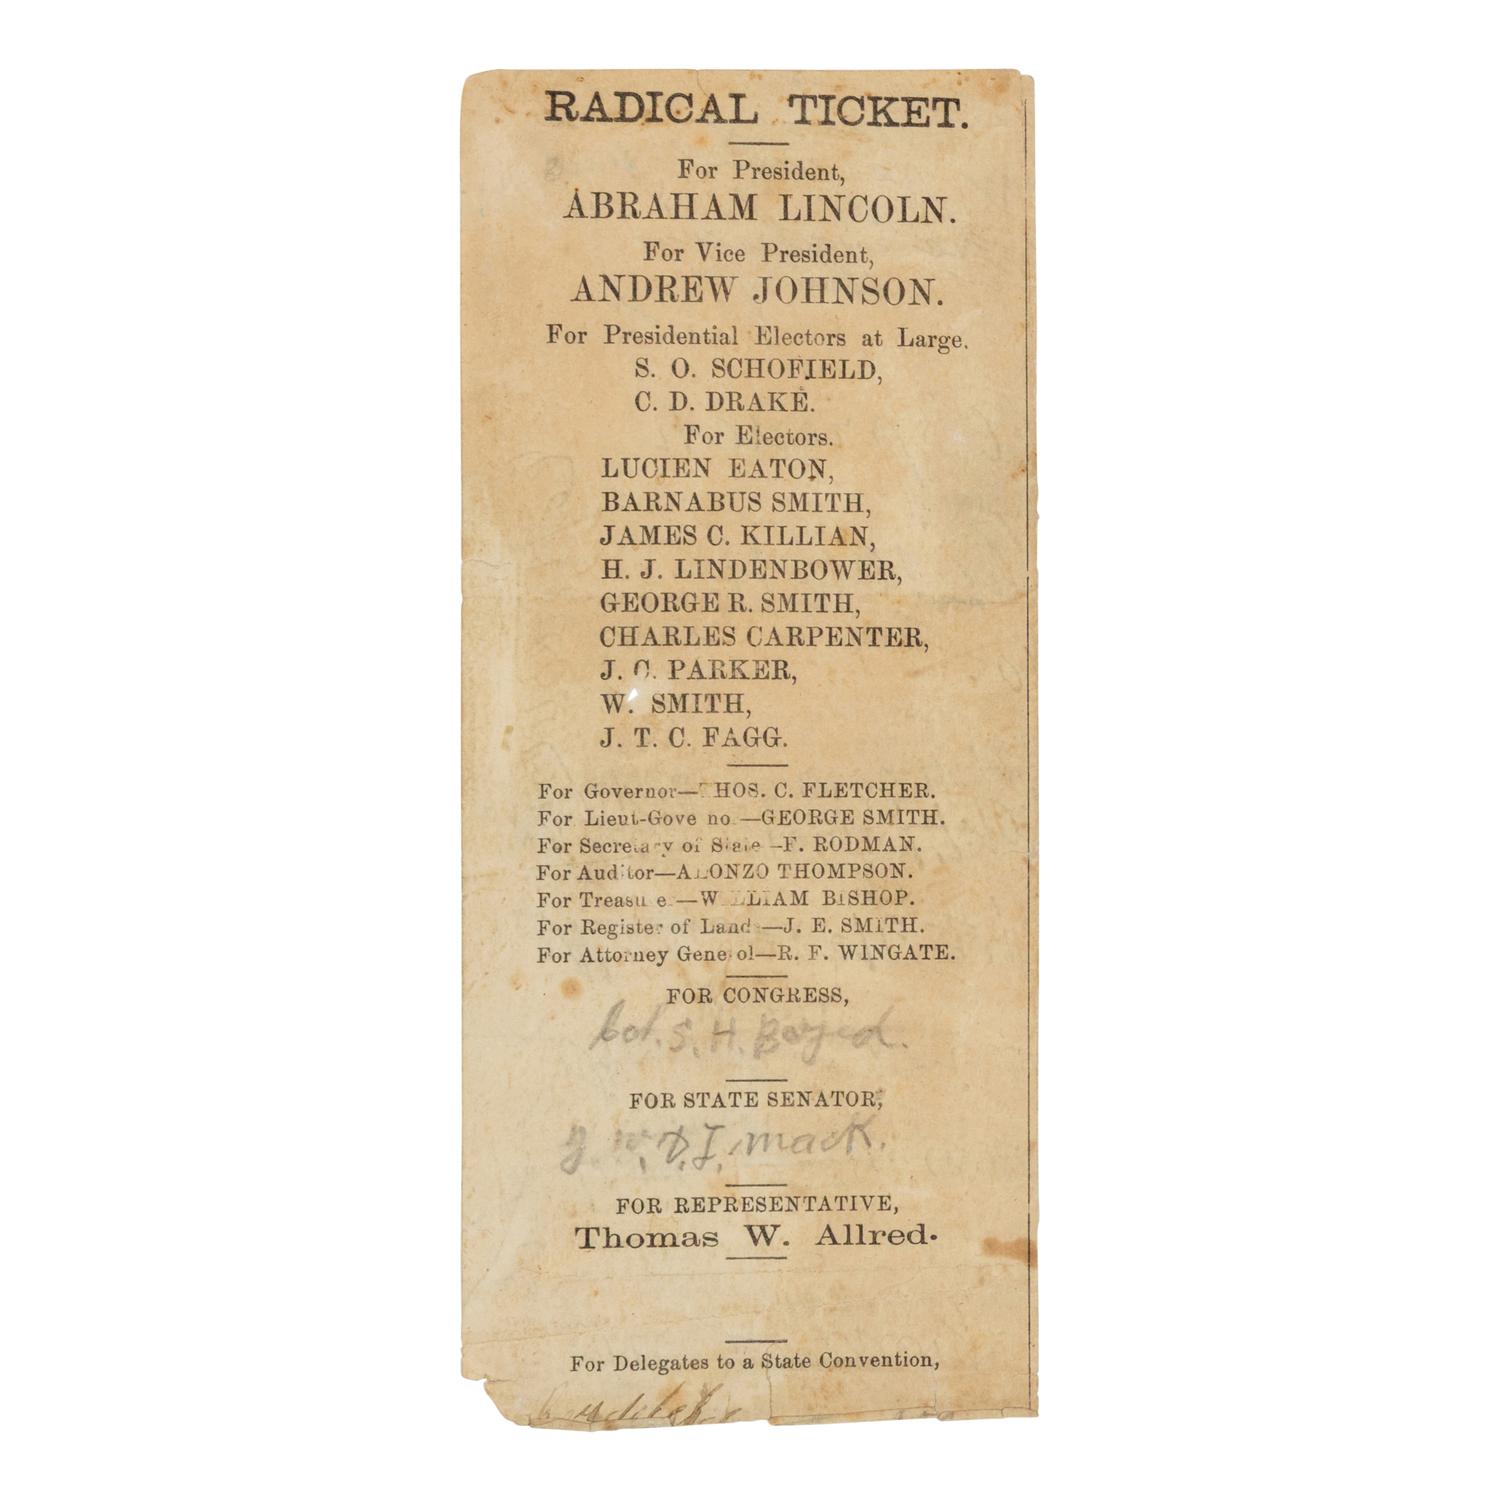 RADICAL TICKET.
For President,
ABRAHAM LINCOLN.
For Vice President,
ANDREW JOHNSON.
For Presidential Electors at Large.
S. O. SCHOFIELD,
C. D. DRAKE.
For Electors.
LUCIEN EATON,
BARNABUS SMITH,
JAMES C. KILLIAN,
H. J. LINDENBOWER,
GEORGE R. SMITH,
CHARLES CARPENTER,
J. C. PARKER,
W. SMITH,
J. T. C. FAGG.
For Governor—THOS. C. FLETCHER.
For Lieut-Gove no —GEORGE SMITH.
For Secretary of State—F. RODMAN.
For Auditor—ALONZO THOMPSON.
For Treasu e —WILLIAM BISHOP.
For Register of Land —J. E. SMITH.
For Attorney Gene ol—R. F. WINGATE.
FOR CONGRESS,
Col. S. H. Boyed.
FOR STATE SENATOR,
D. J. mack.
FOR REPRESENTATIVE,
Thomas W. Allred.
For Delegates to a State Convention,